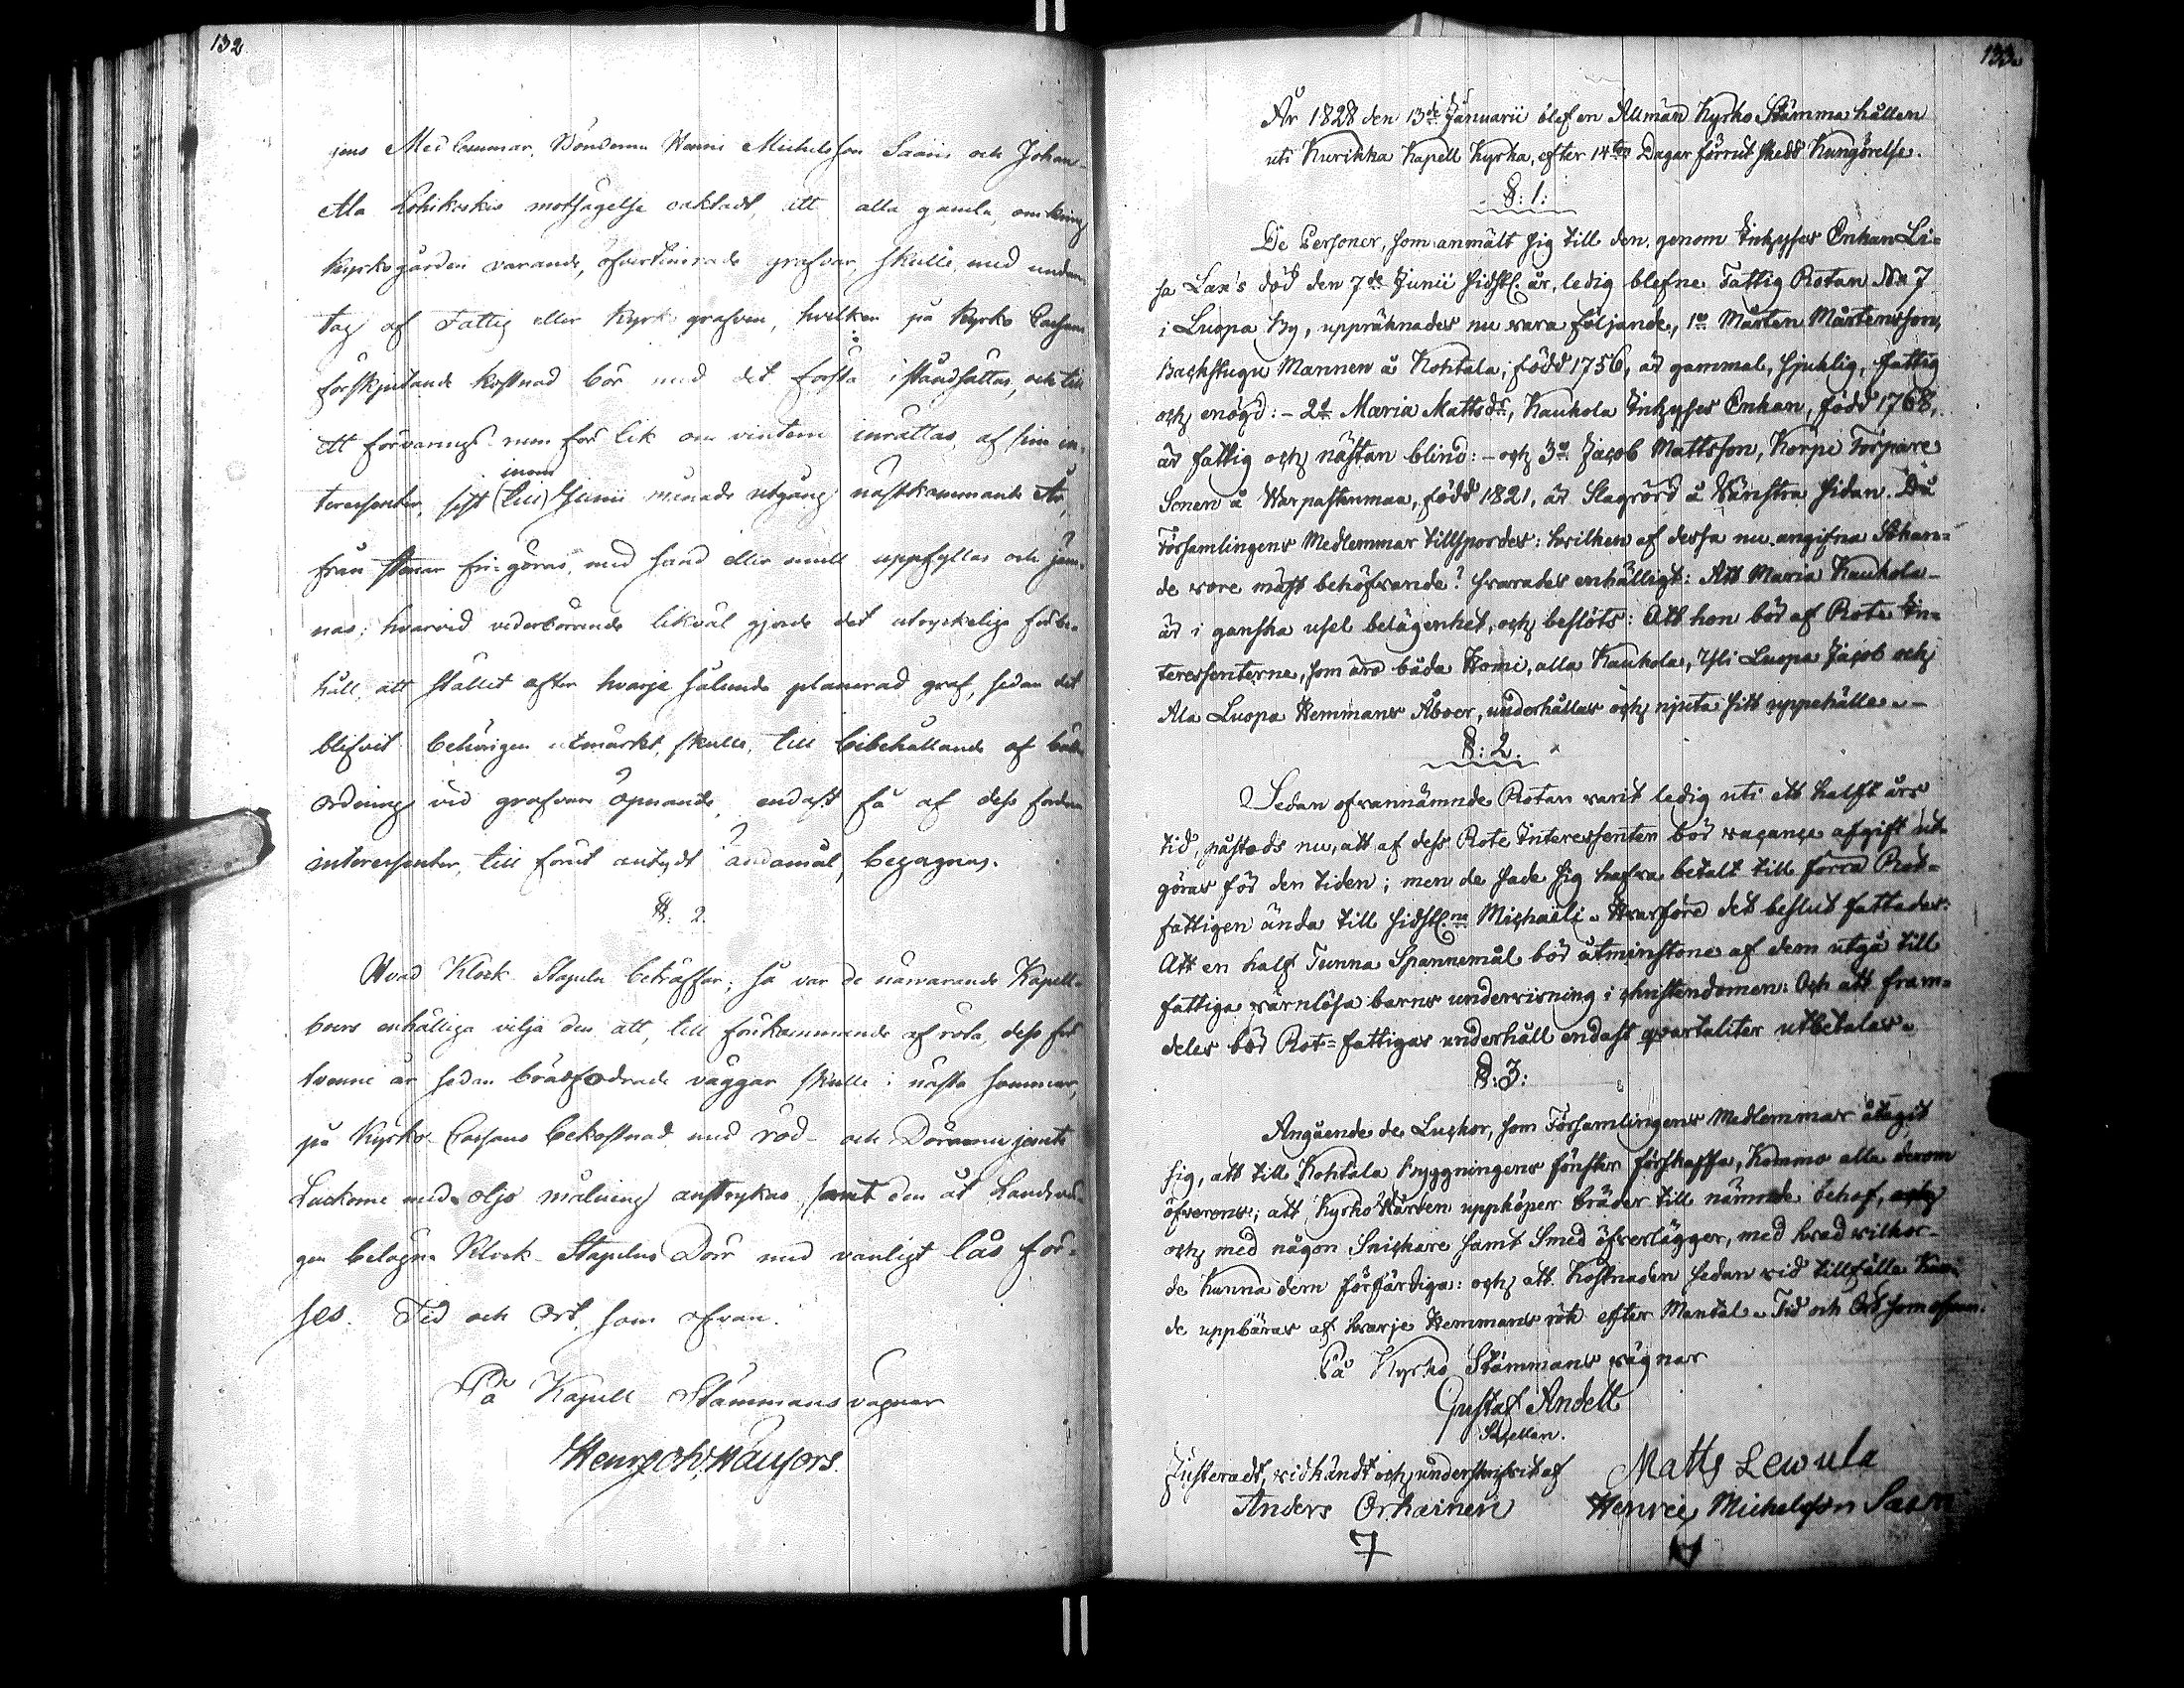 132
jens Medlemmar, Bönderne Henric Michelsson Saaris och Johan
Ala Lohikoskis motsägelse oaktadt, att alla gamla, omkring
Kyrkogården varande, öfvertimrade grafvar, skulle, med undan-
tag af Fattig eller Kyrko grafven, hvilken på Kyrko Cassans
förskjutande kostnad bör med det första i ståndsättas, och till
ett förvarings-rum för lik om vintern inrättas, af sine in-
inom
teressenter, sist (till) Junii månads utgång nästkommande År,
från stenar fri-göras, med sand eller mull uppfyllas och jem-
nas; hvarvid vederbörande likväl gjorde det utryckeliga förbe-
håll, att stället efter hvarje sålunda planerad graf, sedan det
blifvit behörigen utmärkt, skulle, till bibehållande af bättre
ordning vid grafvars öpnande, endast få af dess fordna
interessenter, till förut antydt ändamål, begagnas.
§: 2.
Hvad Klock Stapeln beträffar; så var de närvarande Kapell-
boers enhälliga vilja den att, till förekommande af röta, dess för
tvenne år sedan brädfodrade väggar skulle i nästa sommar,
på Kyrko-Cassans bekostnad med röd- och Dörrarne jemte
Luckorne med olje målning anstrykas, samt den åt Landsvä-
gen belägna Klock-Stapelns Dörr med vanligt lås för-
ses. Tid och Ort, som ofvan.
På Kapell Stämmans vägnar
Henr: Joh: Haufors.
133.
År 1828 den 13de Januarii blef en Allmän Kyrko Stämma hållen
uti Kurikka Kapell Kyrka, efter 14ton Dagar förrut skedd Kungörelse.
§: 1:
De Personer, som anmält sig till den, genom Inhyses Enkan Li-
sa Lax's död den 7de Junii sidstl. år, ledig blefne Fattig Rotan No 7
i Luopa By, uppräknades nu vara följande, 1o Mårten Mårtensson,
Backstugu Mannen å Kohtala, född 1756, är gammal, sjuklig, fattig
och enögd: - 2o Maria Mattsdr, Kaukola Inhyses Enkan, född 1768,
är fattig och nästan blind: - och 3o Jacob Mattsson, Korpi Torpare
Sonen å Warpastenmaa, född 1821, är Slagrörd å Vänstra sidan. Då
Församlingens Medlemmar tillspordes: hvilken af dessa nu angifna Sökan-
de vore mäst behöfvande? svarades enhälligt: Att Maria Kaukola
är i ganska usel belägenhet, och beslöts: Att hon bör af Rote In-
teressenterne, som äro båda Homi, alla Kaukola, Yli Luopa Jacob och
Ala Luopa Hemmans Åboer, underhållas och njuta sitt uppehälle. -
§: 2.
Sedan ofvannämnde Rotan varit ledig uti ett halft års
tid, påstods nu, att af dess Rote Interessenter bör vacance afgift ut-
göras för den tiden; men de sade sig hafva betalt till förra Rot-
fattigen ända till sidstl.ne Michaëli. Hvarföre det beslut fattades:
Att en half Tunna Spannemål bör åtminstone af dem utgå till
fattiga värnlösa barns undervisning i christendomen: Och att fram-
deles bör Rot-fattigas underhåll endast qvartaliter utbetalas.
§: 3:
Angående de Luckor, som Församlingens Medlemmar åtagit
sig, att till Kohtala byggningens fönster förskaffa, kommo alla derom
öfverens; att Kyrko Värden uppköper bräder till nämnde behof,
och med någon Snickare samt Smed öfverlägger, med hvad vilkor
de kunna dem förfärdiga: och att kostnaden sedan vid tillfälle kun-
de uppbäras af hvarje Hemmans rök efter Mantal. Tid och Ort som ofvan.
På Kyrko Stämmans vägnar
Gustaf Andell
Sacellan.
Justeradt, vidkändt och underskrifvit af
Matts Lewula
Anders Orhainen
Henric Michelsson Saari